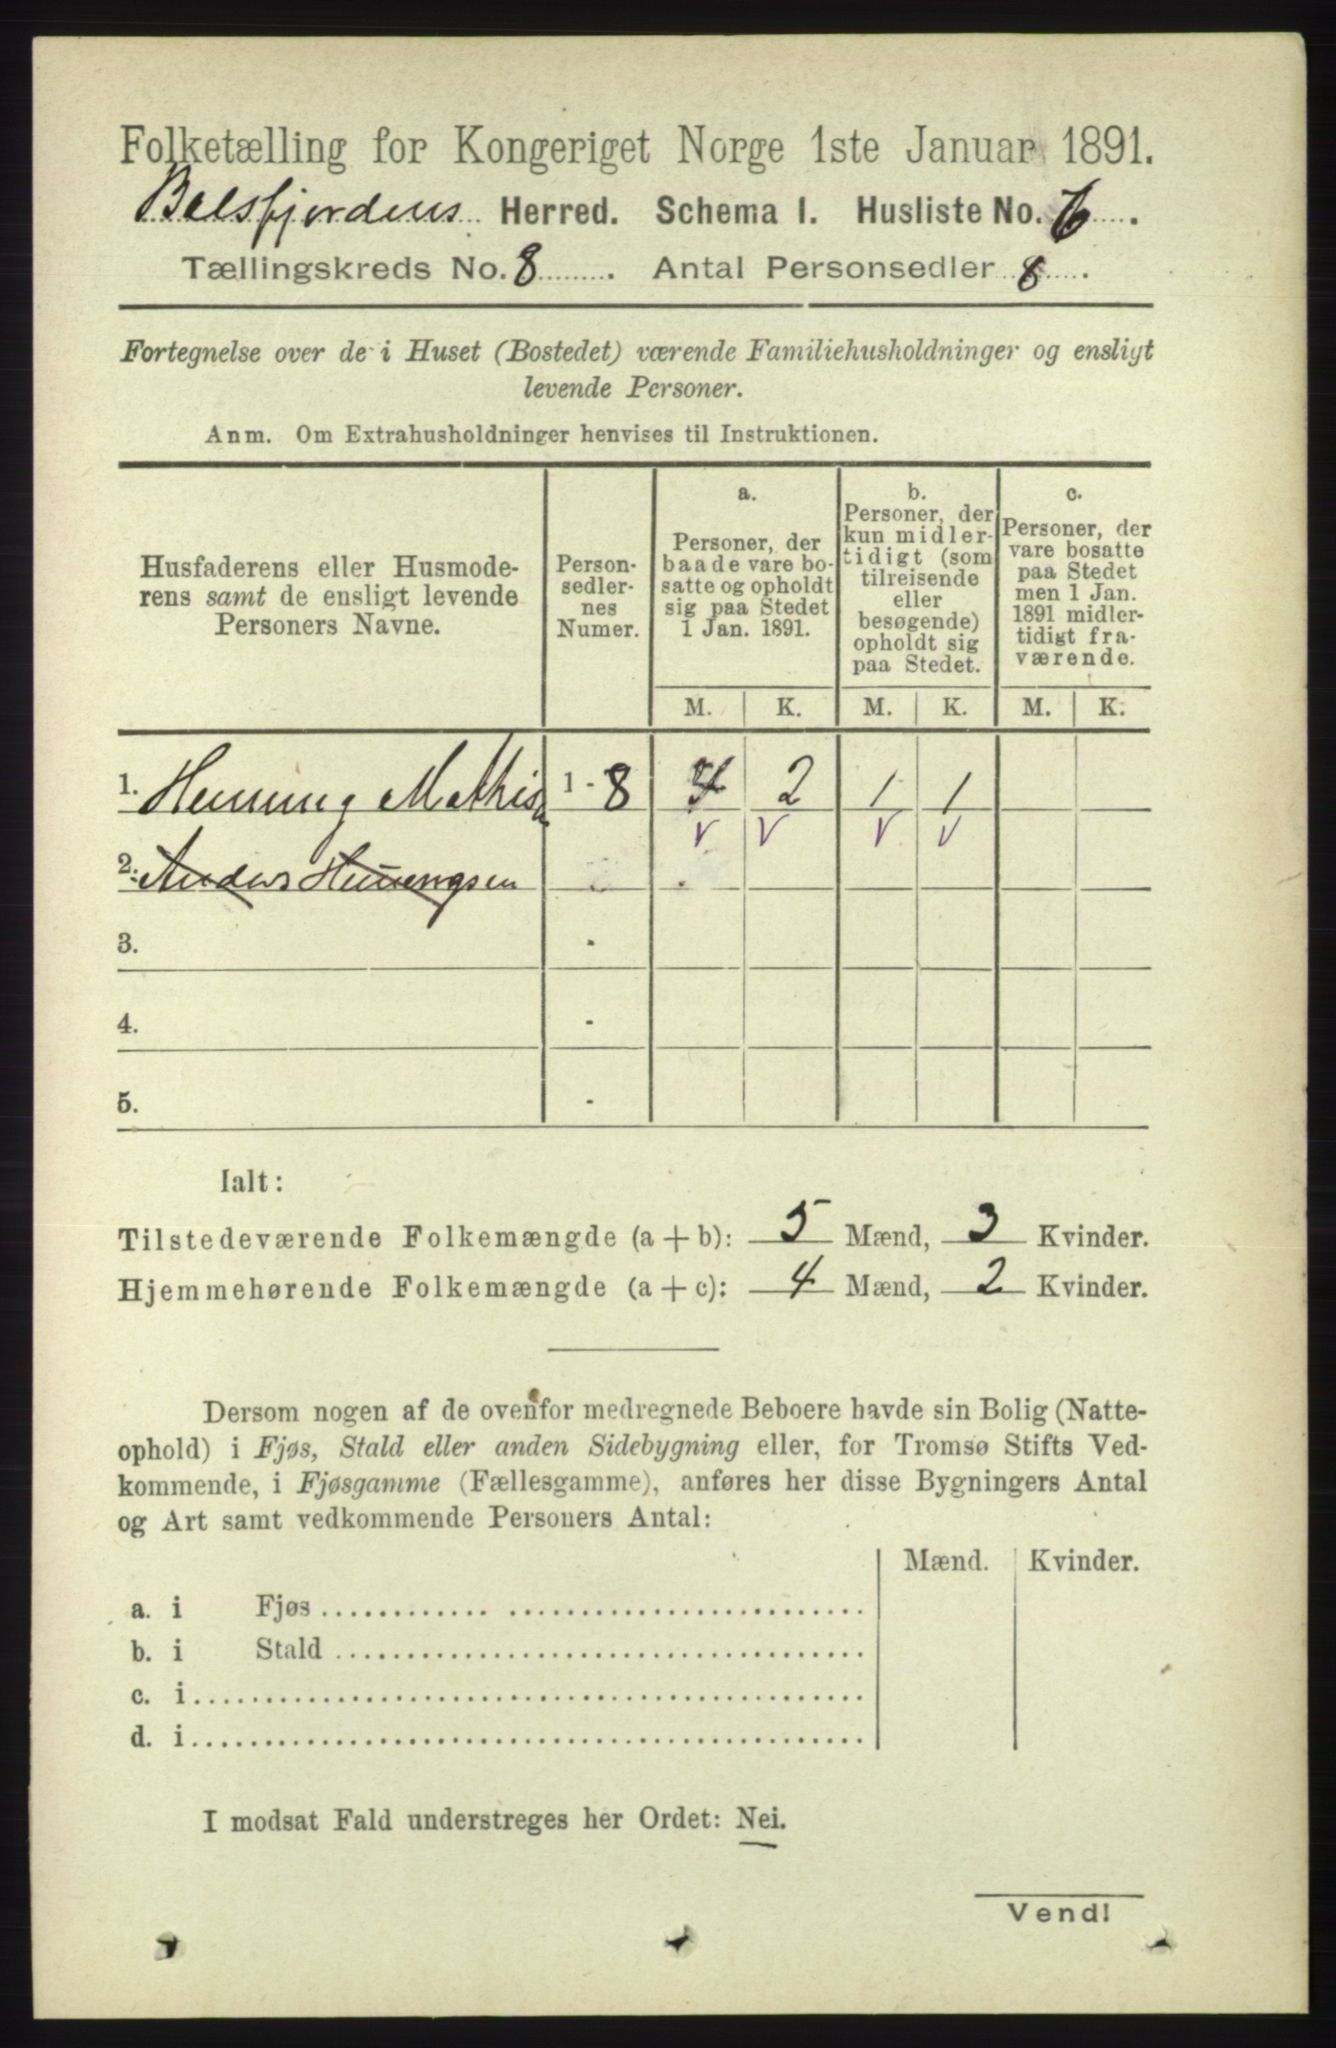 Folketælling for Kongeriget Norge 1ste Januar 1891.
Balsfjordens Herred. Schema I. Husliste No. 6.
Tællingskreds No. 8. Antal Personsedler 8.
Fortegnelse over de i Huset (Bostedet) værende Familiehusholdninger og ensligt
levende Personer.
Anm. Om Extrahusholdninger henvises til Instruktionen.
Husfaderens eller Husmode-
rens samt de ensligt levende
Personers Navne.
Person-
sedler-
nes
Numer.
a.
Personer, der
baade vare bo-
satte og opholdt
sig paa Stedet
1 Jan. 1891.
b.
Personer, der
kun midler-
tidigt (som
tilreisende
eller
besøgende)
opholdt sig
paa Stedet.
c.
Personer, der
vare bosatte
paa Stedet
men 1 Jan.
1891 midler-
tidigt fra-
værende.
M. K. M. K. M. K.
1. Henning Mathis 1 - 8 4 2 1 1
v v v v
2. Anders Henningsen
3. -
4. -
5. -
Ialt:
Tilstedeværende Folkemængde (a + b): 5 Mænd, 3 Kvinder.
Hjemmehørende Folkemængde (a + c): 4 Mænd, 2 Kvinder.
Dersom nogen af de ovenfor medregnede Beboere havde sin Bolig (Natte-
ophold) i Fjøs, Stald eller anden Sidebygning eller, for Tromsø Stifts Ved-
kommende, i Fjøsgamme (Fællesgamme), anføres her disse Bygningers Antal
og Art samt vedkommende Personers Antal:
Mænd. Kvinder.
a. i Fjøs
b. i Stald
c. i
d. i
I modsat Fald understreges her Ordet: Nei.
Vend!